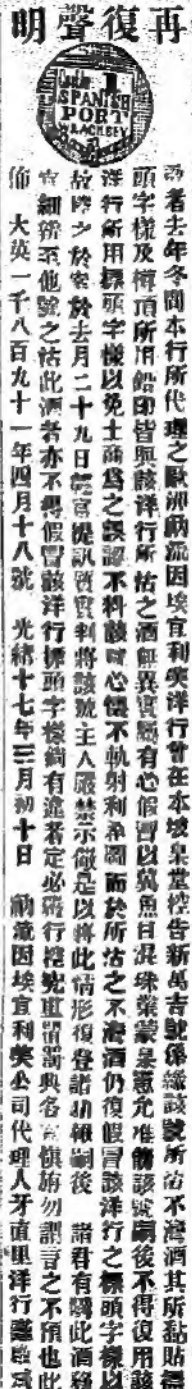 再復聲明
SPANISH
PORT
啓者去年冬間本行所代理之歐洲砵㴞因埃宜利樂洋行曾在本坡臬堂控告新萬吉號係緣該號所沽不灣酒其所黏貼標
頭字樣及樽頂所用鉛印皆與該洋行所沽之酒無異實屬有心假冒以冀魚目混珠業蒙臬憲允准飭該號嗣後不得復用該
洋行所用標頭字樣以免士商爲之誤認不料該號心懷不軌射利希圖而於所沽之不灣酒仍復假冒該洋行之標頭字樣以
故控之於案於去月二十九日經官提訊質實判將該號主人嚴禁示儆是以將此情形復登諸叻報嗣後 諸君有購此酒務
宜細辨至他號之沽此酒者亦不得假冒該洋行標頭字樣倘有違者定必稟行控究重請罰與各宜愼旃勿謂言之不預也此
佈 大英一千八百九十一年四月十八號 光緒十七年三月初十日 㴞因埃宜利樂公司代理人牙直里洋行謹啟